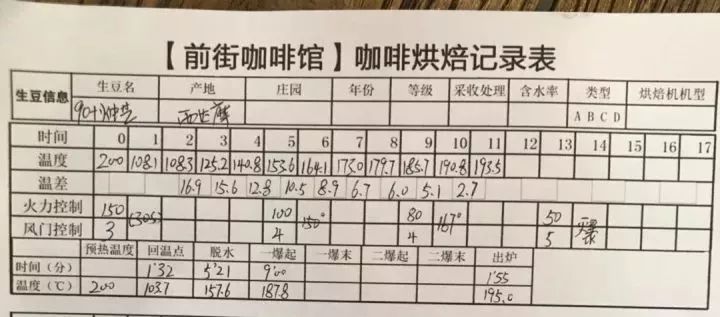 【前街咖啡馆】咖啡烘焙记录表
生豆信息 生豆名 产地 庄园 年份 等级 采收处理 含水率 类型 烘焙机机型
90+ A B C D
时间 0 1 2 3 4 5 6 7 8 9 10 11 12 13 14 15 16 17
温度 200 108.1 108.3 125.2 140.8 153.6 164.1 173.0 179.7 185.7 190.8 193.5
温差 16.9 15.6 12.8 10.5 8.9 6.7 6.0 5.1 2.7
火力控制 150 100 80 50
风门控制 3 4 150° 4 167° 5 爆
预热温度 回温点 脱水 一爆起 一爆末 二爆起 二爆末 出炉
时间(分) 1'32 5'21 9'00 1'55
温度(℃) 200 103.7 157.6 187.8 195.0